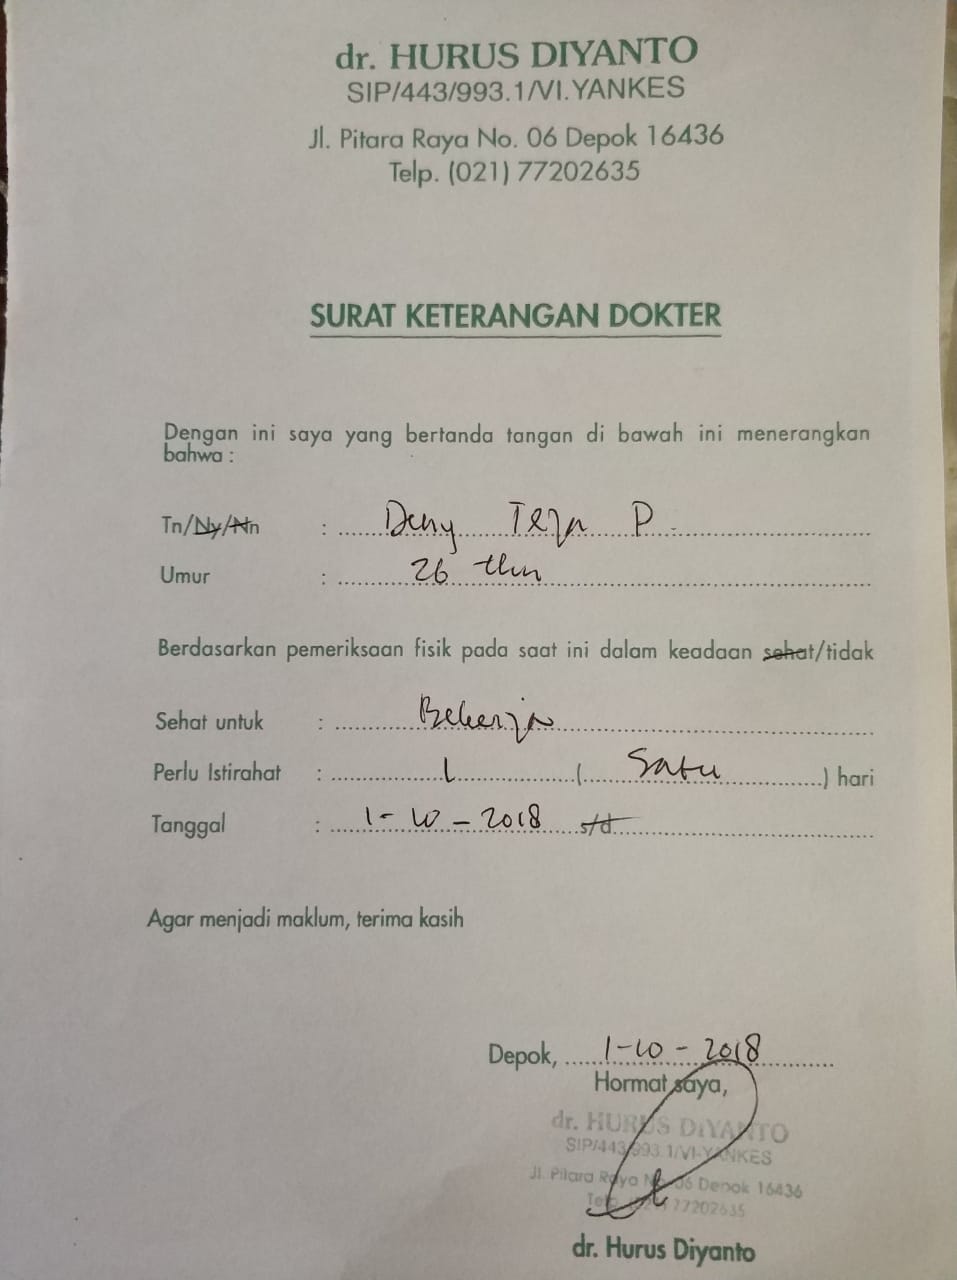 dr. HURUS DIYANTO
SIP/443/993.1/VI.YANKES
Jl. Pitara Raya No. 06 Depok 16436
Telp. (021) 77202635
SURAT KETERANGAN DOKTER
Dengan ini saya yang bertanda tangan di bawah ini menerangkan
bahwa :
Tn/Ny/Nn : Deny Teja P.
Umur : 26 thn
Berdasarkan pemeriksaan fisik pada saat ini dalam keadaan sehat/tidak
Sehat untuk : Bekerja
Perlu Istirahat : 1 ( Satu ) hari
Tanggal : 1-10-2018 s/d.
Agar menjadi maklum, terima kasih
Depok, 1-10-2018
Hormat saya,
dr. HURUS DIYANTO
SIP/443/993.1/VI-YANKES
Jl. Pitara Raya No. 06 Depok 16436
Telp. (021) 77202635
dr. Hurus Diyanto